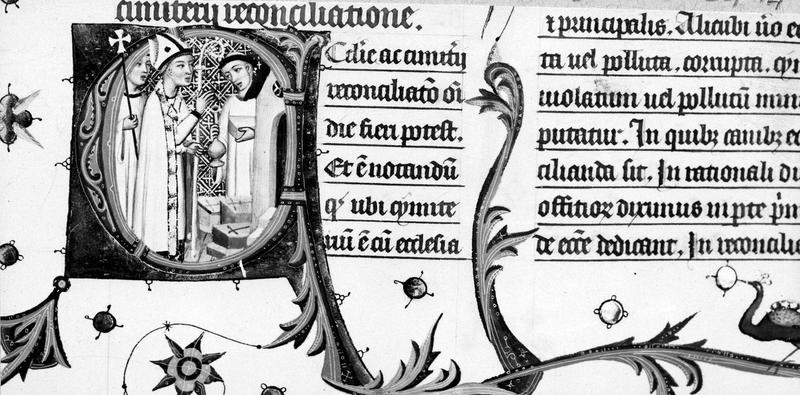 cimiterii reconciliatione.
Ccłie ac cimitij
reconciliatō oi
die fieri potest.
Et ē notandū
qꝫ ubi cymite
riū ē cū ecclesia
⁊ principalis. Alicubi ūo ec
ta uel polluta. corrupta. qn
uiolatum uel pollutū
putatur. In quibꝫ
cilianda sit. In rationali di
offitioꝝ diximus in pte
de ecc̄e dedicant. In reconcilia